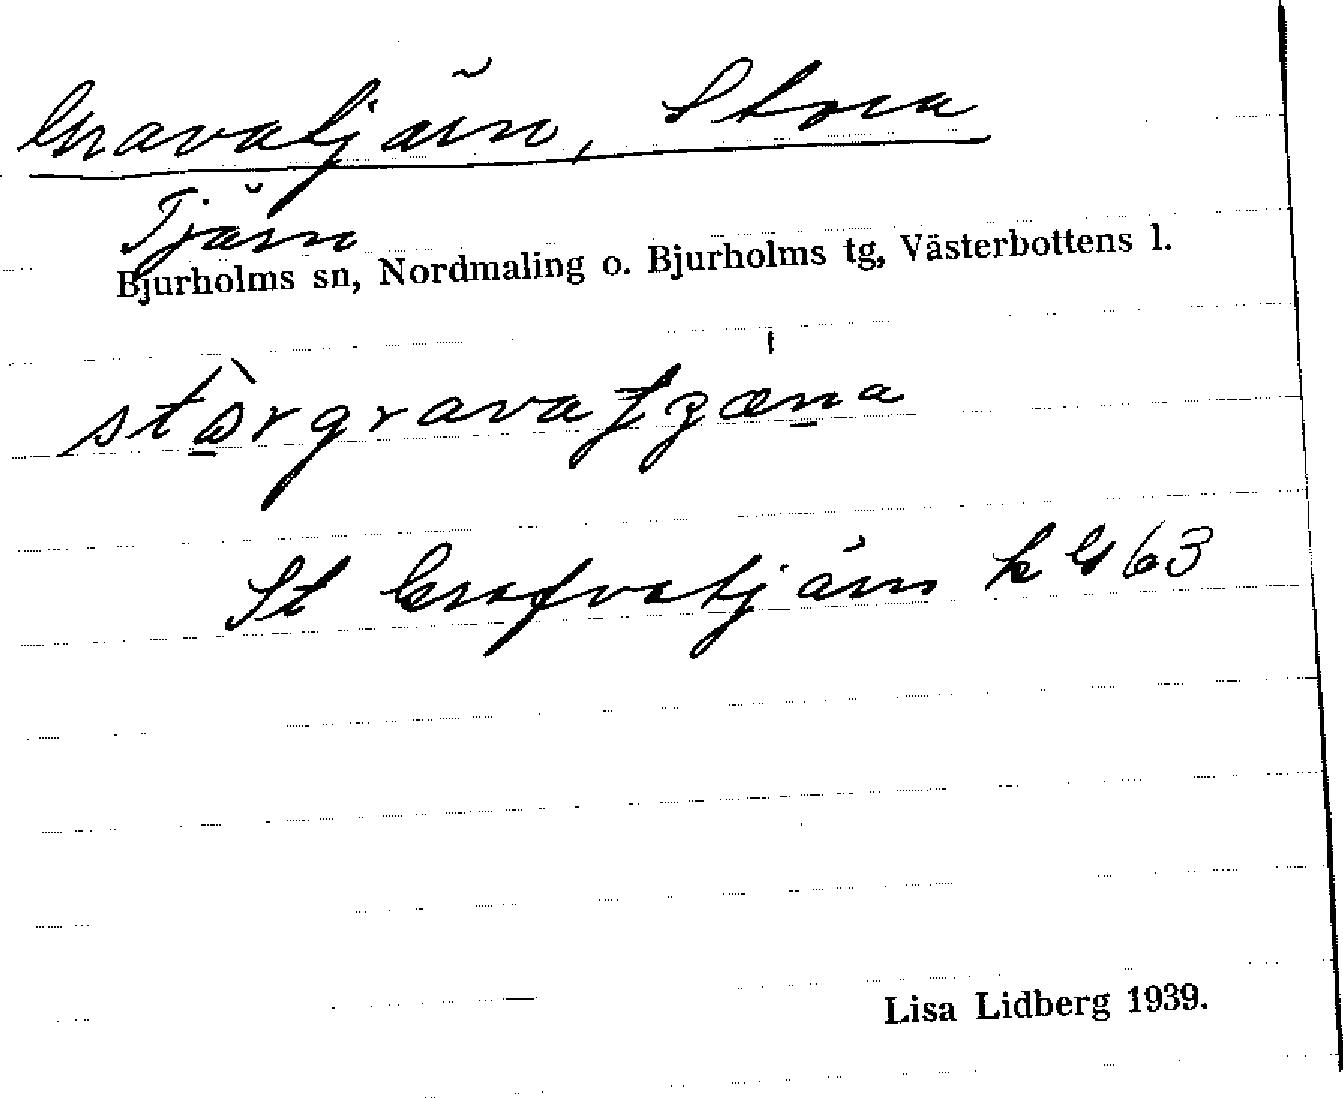 Gravatjärn, Stora
Tjärn
Bjurholms sn, Nordmaling o. Bjurholms tg, Västerbottens l.
St Grafvatjärn k G 63
Lisa Lidberg 1939.